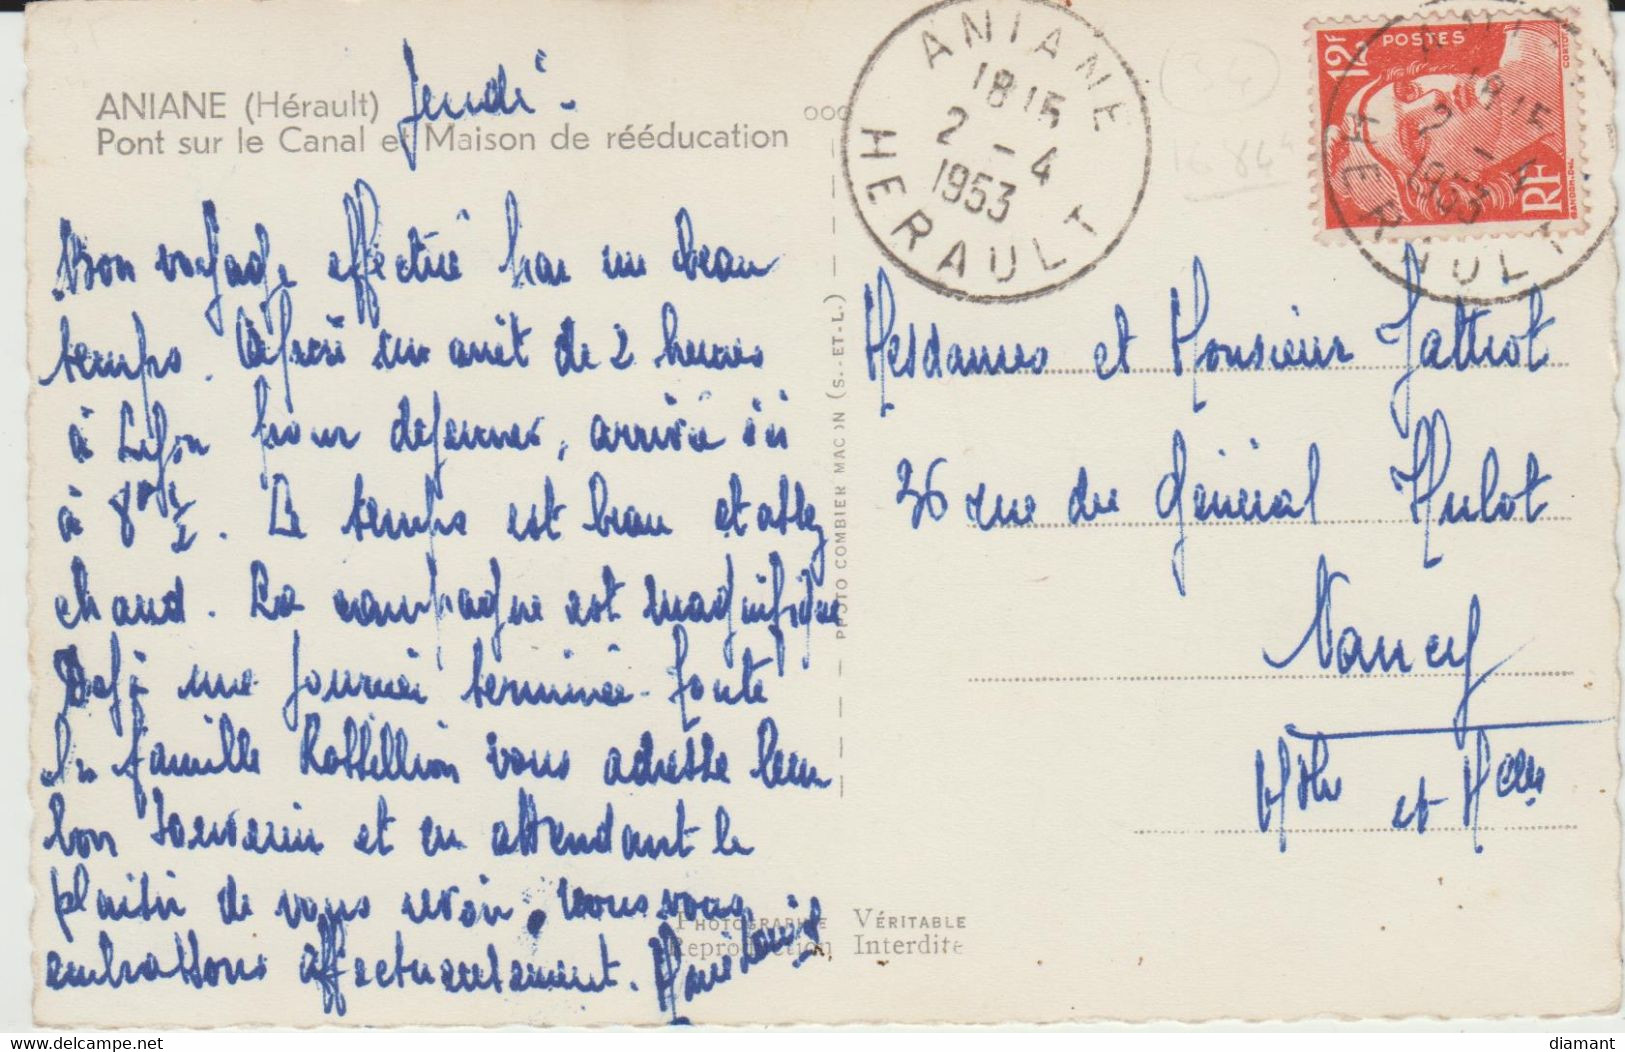 ANIANE (Hérault)
Pont sur le Canal et Maison de rééducation
Jeudi -
Bon voyage effectué par un beau
temps. Après un arrêt de 2 heures
à Lyon pour déjeuner, arrivée ici
à 8h 1/2. Le temps est beau et assez
chaud. La campagne est magnifique
Déjà une journée terminée. Toute
la famille vous adresse leur
bon souvenir et en attendant le
plaisir de vous revoir, nous vous
embrassons affectueusement.
PHOTO COMBIER MACON (S.-ET-L.)
PHOTOGRAPHIE VÉRITABLE
Reproduction Interdite
ANIANE
18 15
2 - 4
1953
HERAULT
12F
POSTES
RF
GANDON.DEL
18 15
2 - 4
1953
HERAULT
Mesdames et Monsieur
36 rue du Général Hulot
Nancy
et
diamant